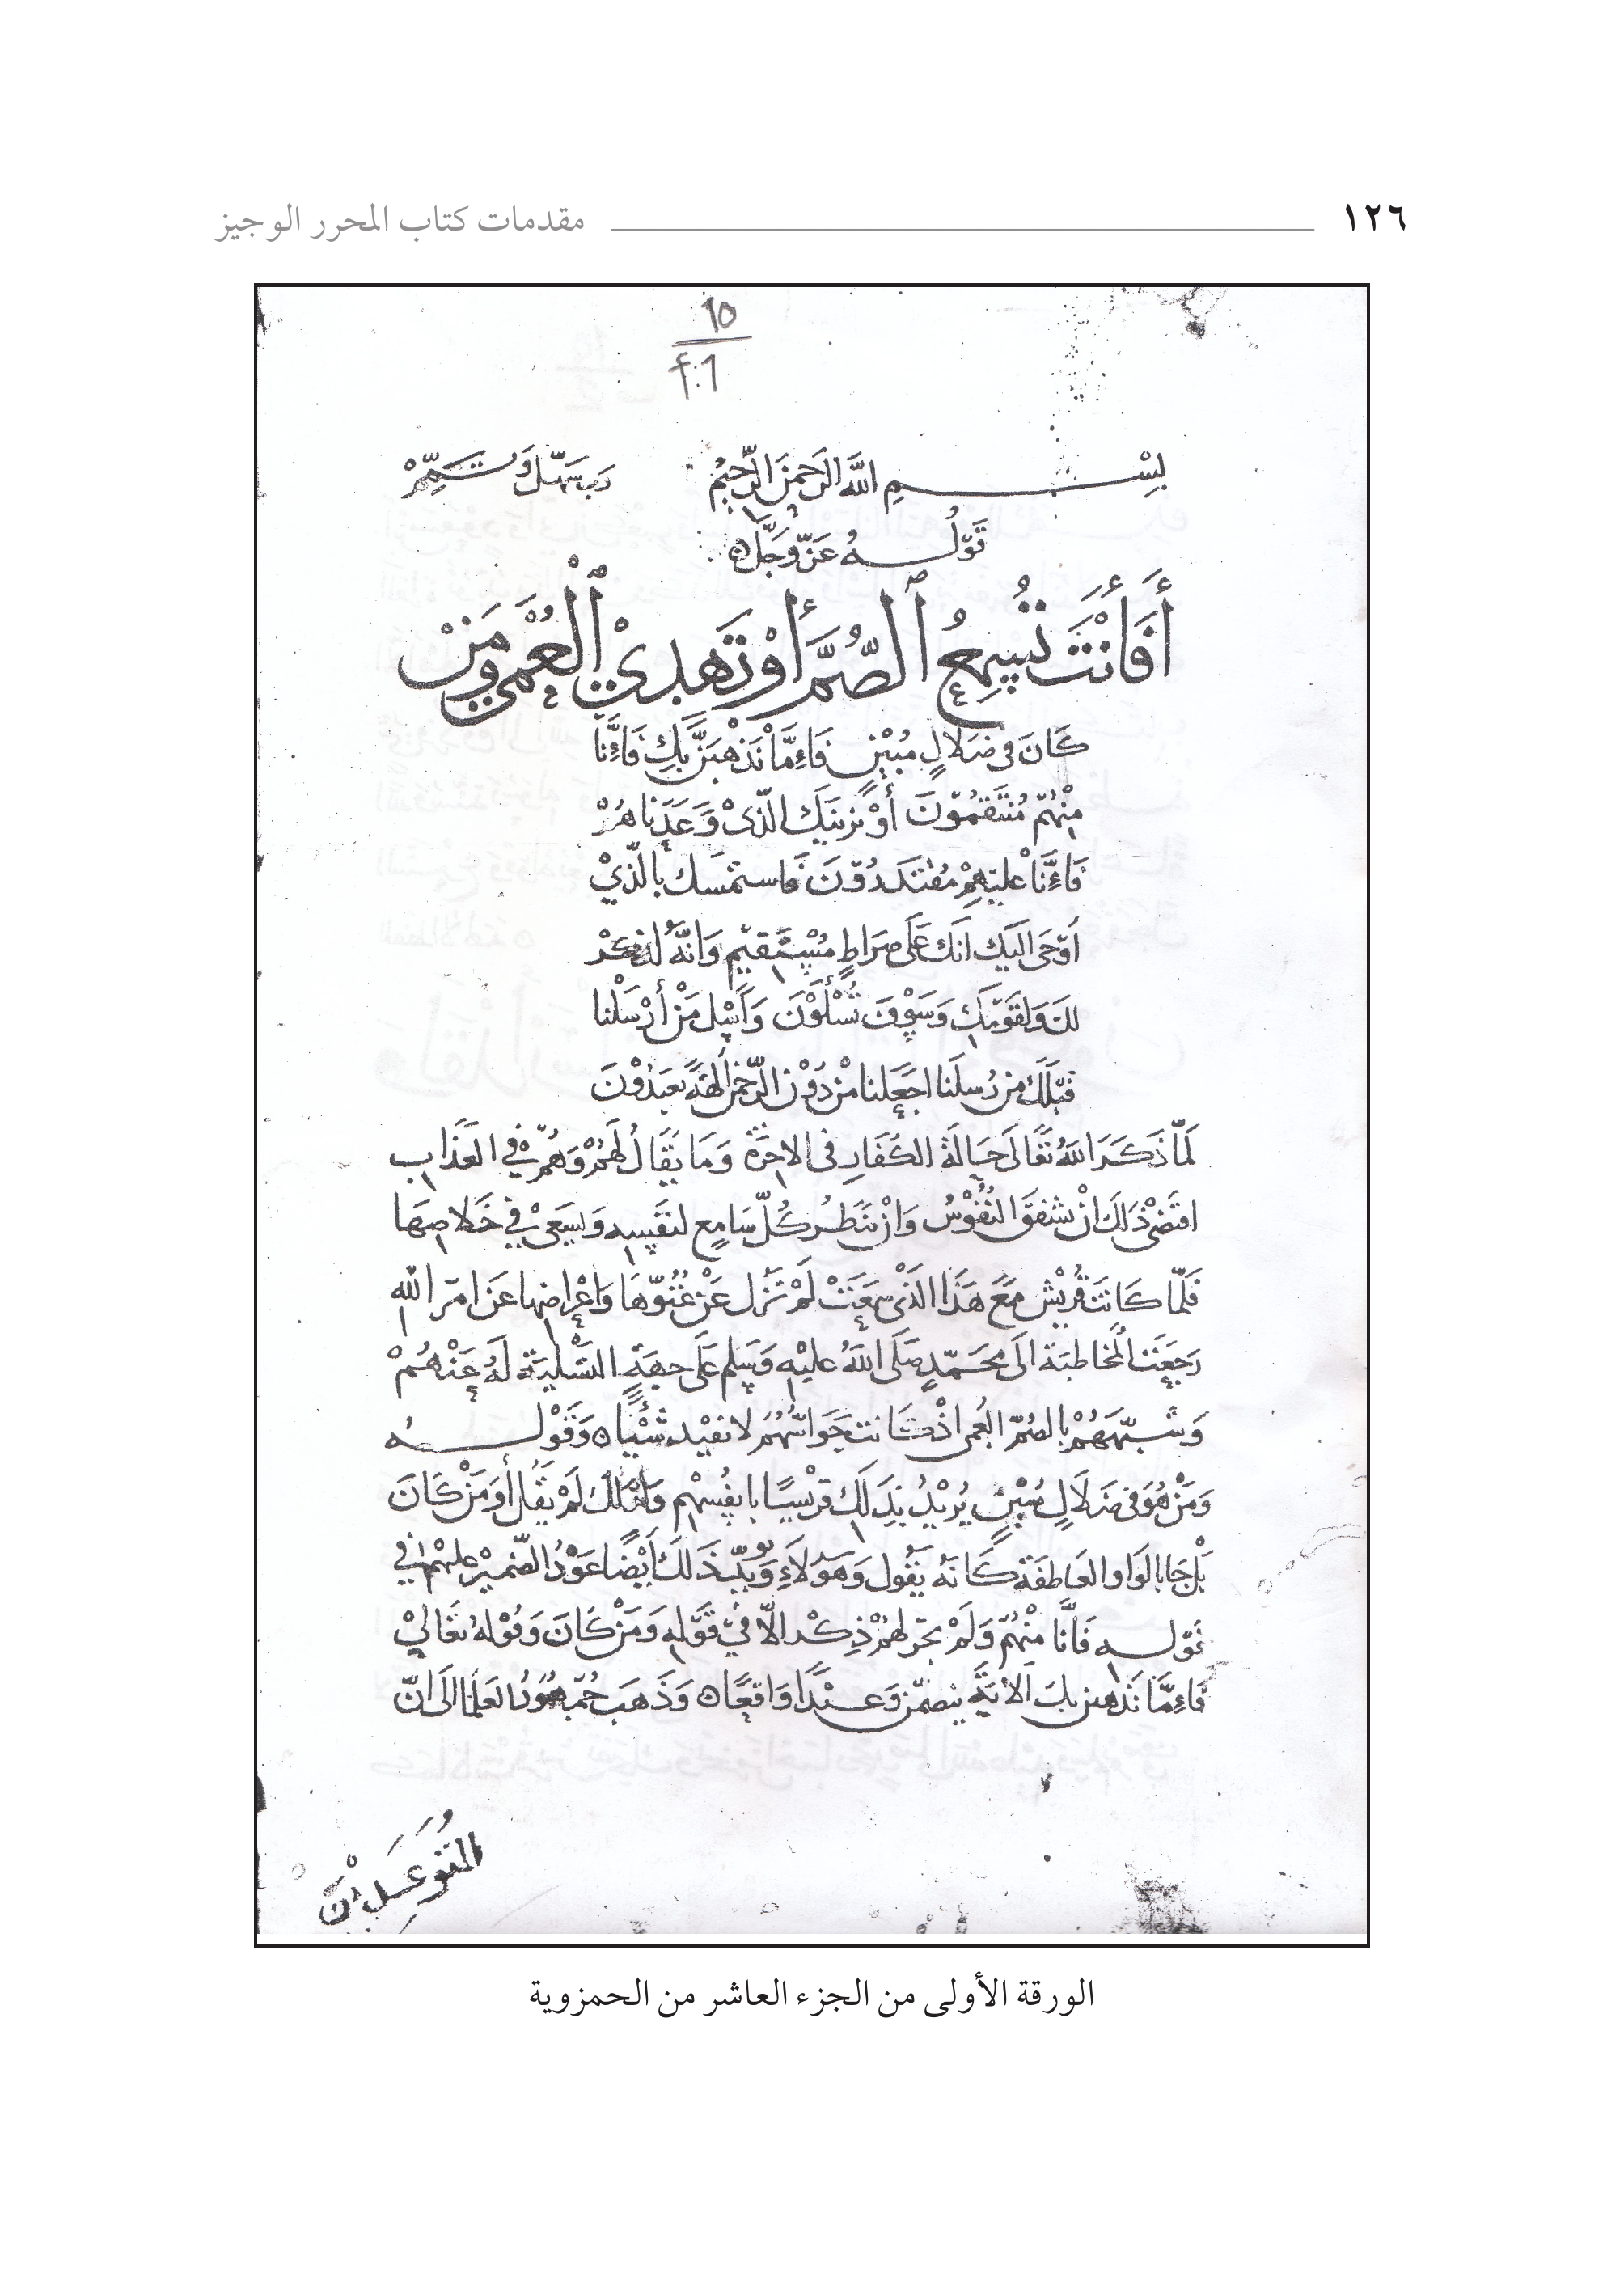 ١٢٦ مقدمات كتاب المحرر الوجيز
10
f.1
بسم الله الرحمن الرحيم رب سهل وتمم
قوله عز وجل
أفأنت تسمع ٱلصم أو تهدي ٱلعمي ومن
كان في ضلال مبين فإما نذهبن بك فإنا
منهم منتقمون أو نرينك الذي وعدناهم
فإنا عليهم مقتدرون فاستمسك بالذي
أوحى اليك انك على صراط مستقيم وانه لذكر
لك ولقومك وسوف تسئلون وأسئل من أرسلنا
قبلك من رسلنا اجعلنا من دون الرحمن الهة يعبدون
لما ذكر الله تعالى حالة الكفار في الاخرة وما يقال لهم وهم في العذاب
اقتضى ذلك ان تشفق النفوس وان ينظر كل سامع لنفسه ويسعى في خلاصها
فلما كانت قريش مع هذا الذي سمعت لم تزل عن عتوها واعراضها عن امر الله
رجعت المخاطبة الى محمد صلى الله عليه وسلم على جهة التسلية له عنهم
وشبههم بالصم العمي اذ كانت حواسهم لا تفيد شيئا وقوله
ومن هو في ضلال مبين يريد بذلك قريشا بانفسهم ولذلك لم يقل أو من كان
بل جا بالواو العاطفة كانه يقول وهؤلاء ويبين ذلك أيضا عود الضمير عليهم في
قوله فانا منهم ولم يجر لهم ذكر الا في قوله ومن كان وقوله تعالى
فإما نذهبن بك الاية يتضمن وعيدا واقعا وذهب جمهور العلما الى ان
المتوعدين
الورقة الأولى من الجزء العاشر من الحمزوية